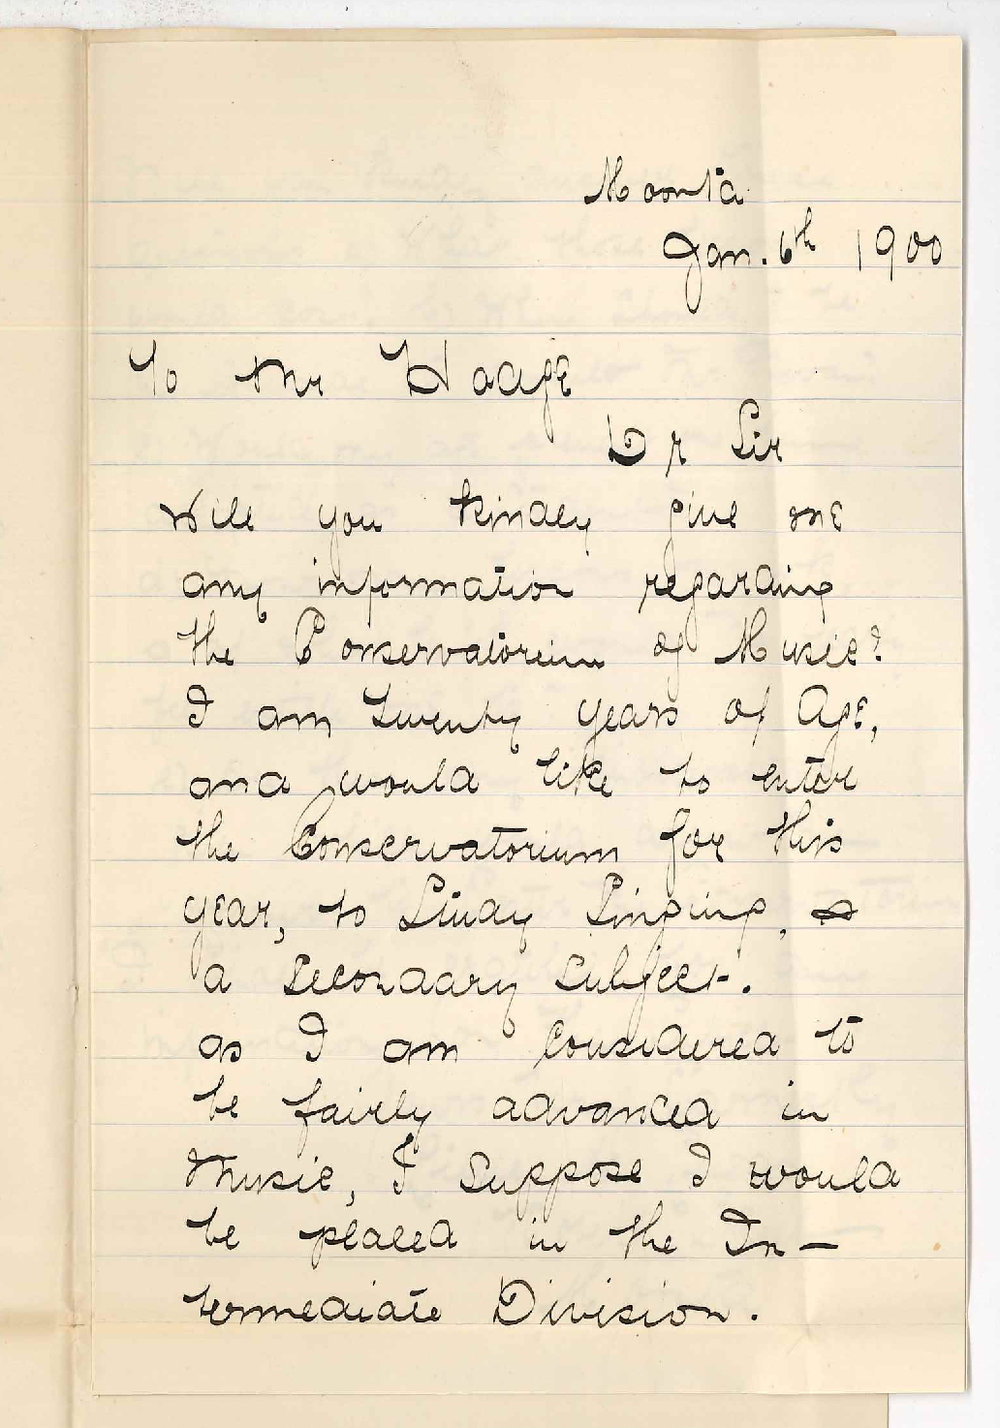 Moonta
Jan. 6th 1900
To Mr Hodge
Dr Sir
Will you kindly give me
any information regarding
the Conservatorium of Music?
I am twenty years of Age,
and would like to enter
the Conservatorium for this
year, to Study Singing,
a Secondary Subject.
as I am considered to
be fairly advanced in
Music, I suppose I would
be placed in the In-
termediate Division.